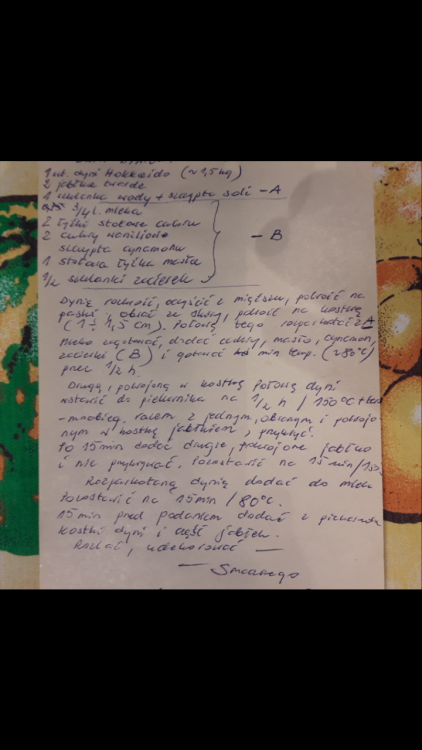 1 szt. dyni Hokkaido (~1,5 kg)
2 jabłka twarde
1 szklanka wody + szczypta soli – A
3/4 l. mleka
2 łyżki stołowe cukru
2 cukry waniliowe – B
szczypta cynamonu
1 stołowa łyżka masła
1/2 szklanki zacierek
Dynię rozkroić, oczyścić z miąższu, pokroić na
paski, obrać ze skóry, pokroić na kostkę
(1 ÷ 1,5 cm). Połowę tego rozparować z A
Mleko zagotować, dodać cukry, masło, cynamon,
zacierki (B) i gotować min temp. (~80°C)
przez 1/2 h.
Drugą, pokrojoną w kostkę połowę dyni
wstawić do piekarnika na 1/2 h / 150°C
razem z jednym, obranym i pokrojo
nym w kostkę jabłkiem, przykryć.
Po 15 min dodać drugie, pokrojone jabłko
i nie przykrywać. Pozostawić na 15 min/150
Rozparowaną dynię dodać do mleka
Pozostawić na 15 min / 80°C.
15 min przed podaniem dodać z piekarnika
kostki dyni i część jabłek.
Rozlać, udekorować —
— Smacznego